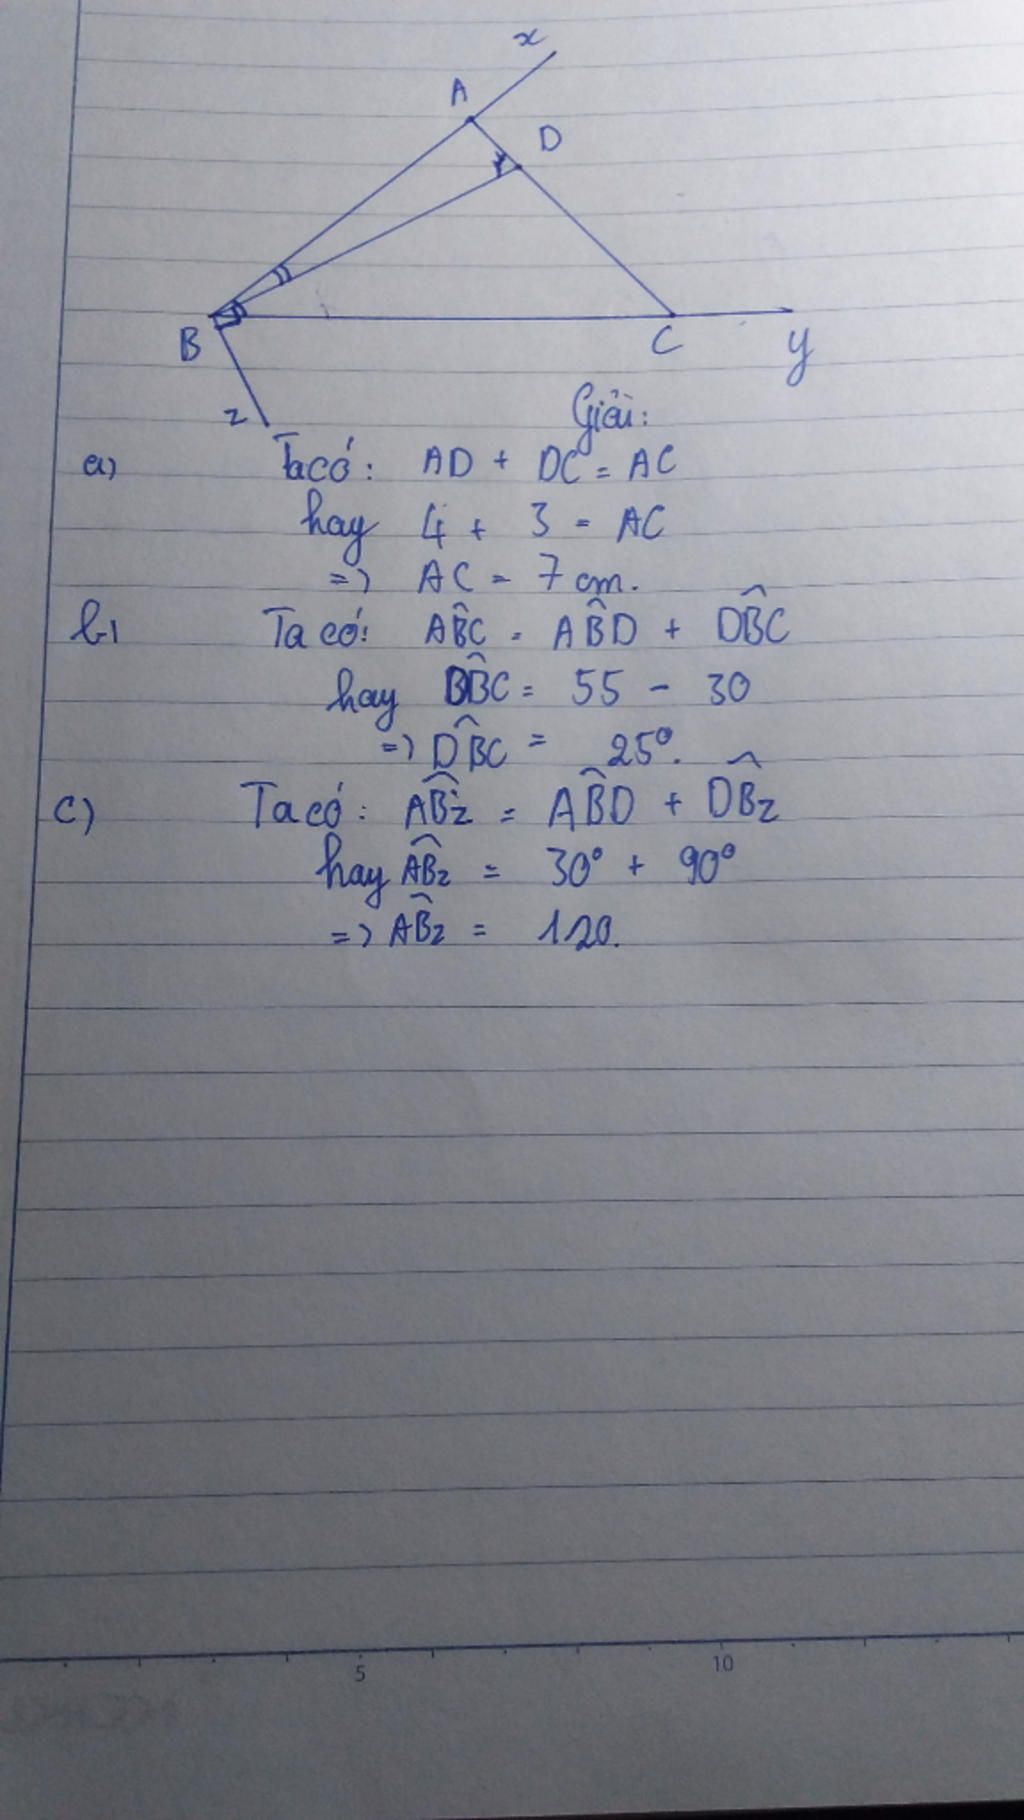 x
A
D
B
C
y
z
Giải:
a) Ta có: AD + DC = AC
hay 4 + 3 = AC
=> AC = 7 cm.
b) Ta có: AB̂C = AB̂D + DB̂C
hay DB̂C = 55 - 30
=> DB̂C = 25°.
c) Ta có: AB̂z = AB̂D + DB̂z
hay AB̂z = 30° + 90°
=> AB̂z = 120.
5 10